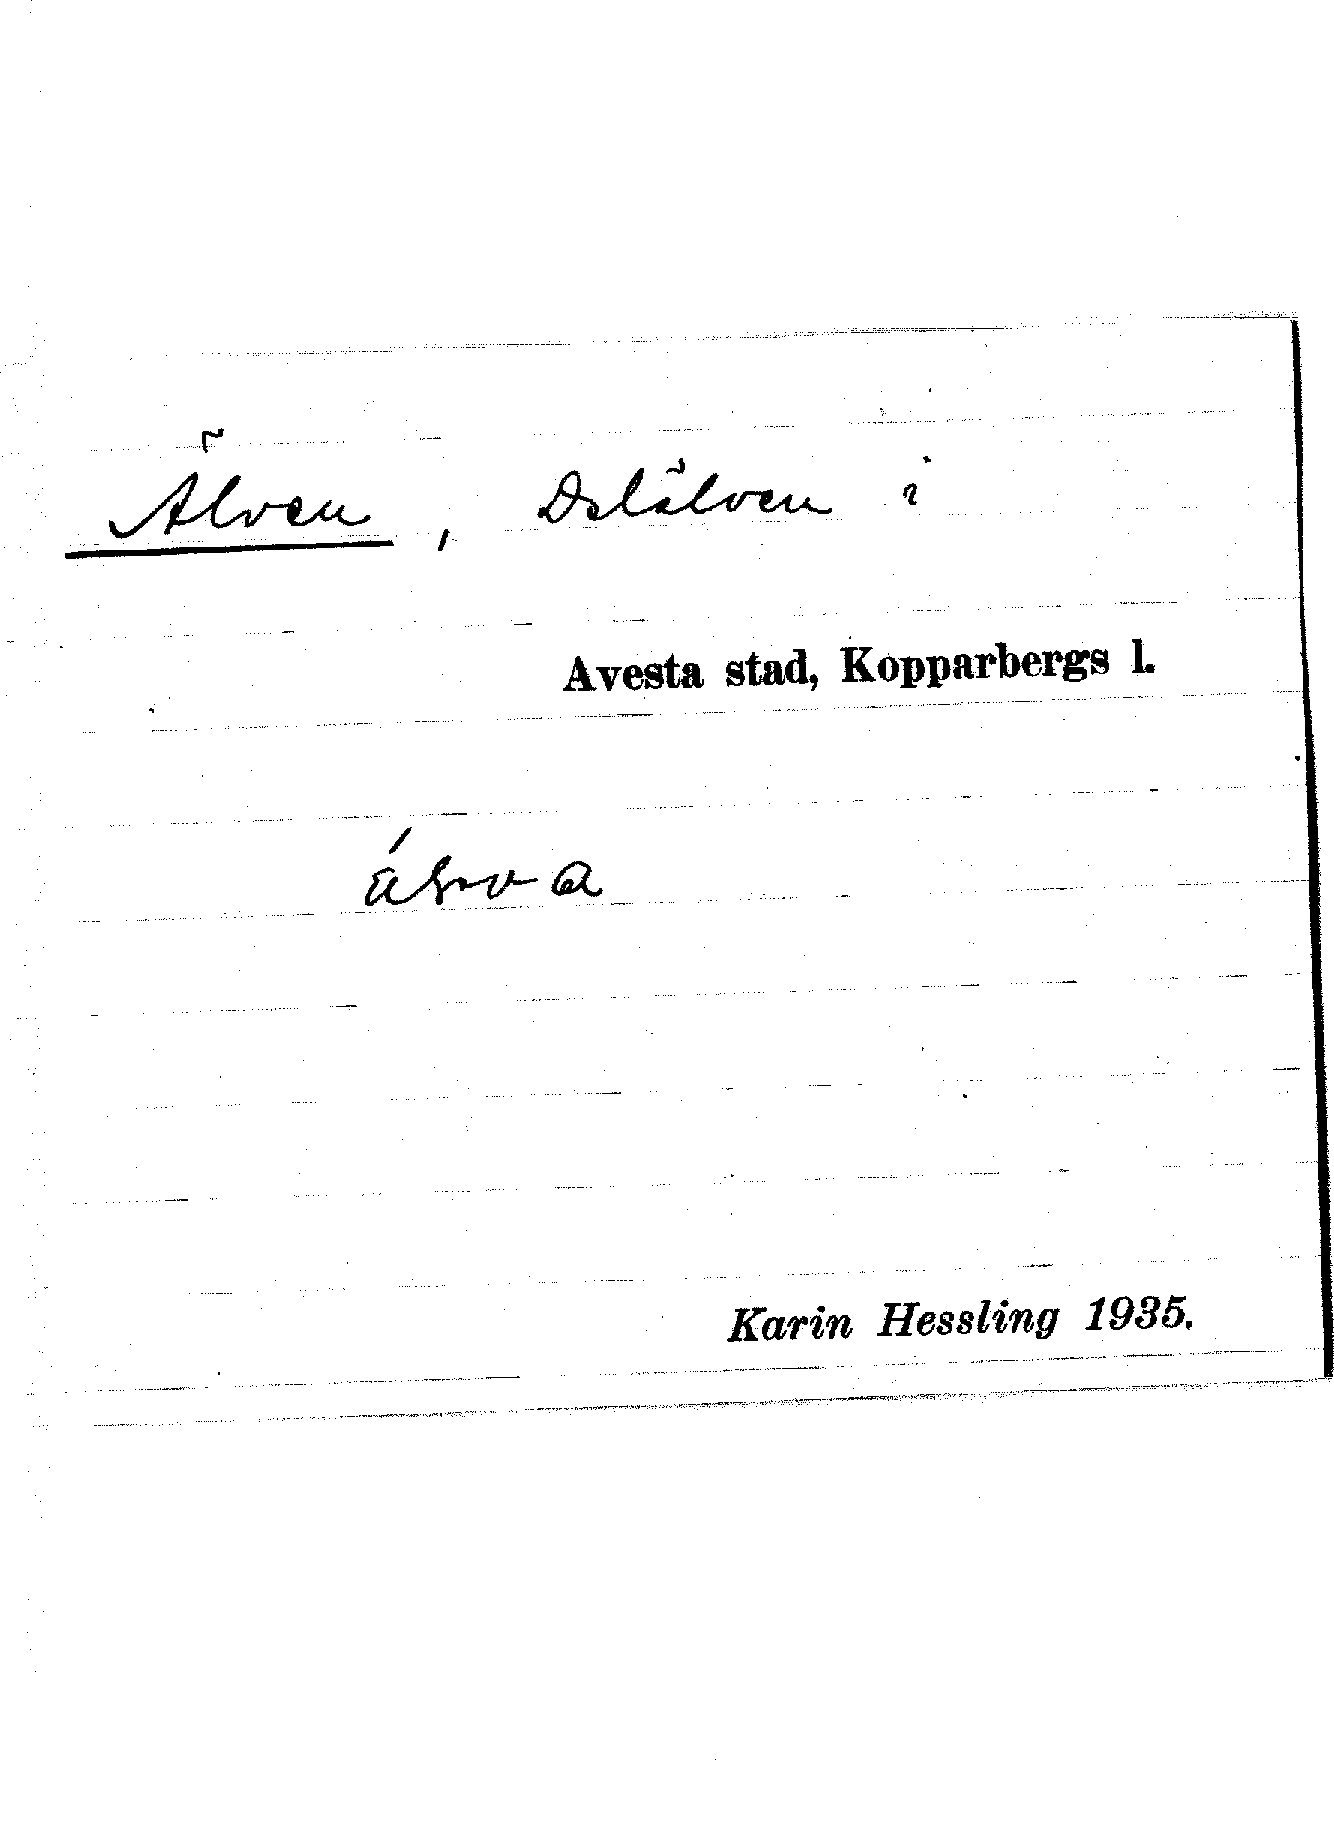 Älven, Dalälven i
Avesta stad, Kopparbergs l.
Karin Hessling 1935.